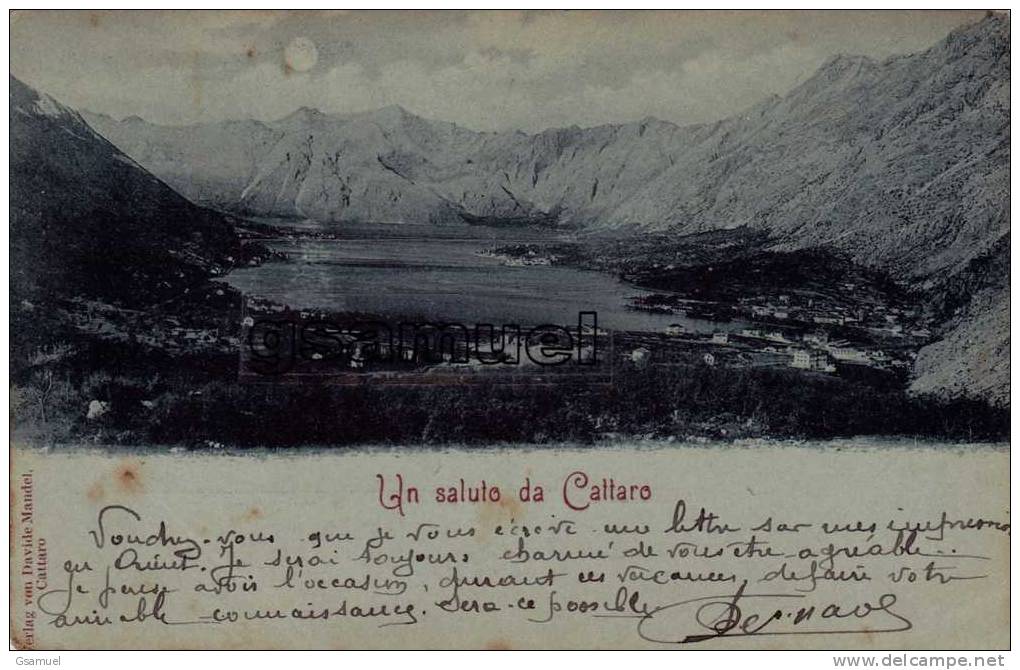 gsamuel
Un saluto da Cattaro
Verlag von Davide Mandel,
Cattaro
Voudrez-vous que je vous écrive une lettre sur mes impressions
en Orient. Je serai toujours charmé de vous être agréable..
Je pense avoir l'occasion, durant ces vacances, de faire votre
aimable connaissance. Sera-ce possible
Gsamuel
http://www.delcampe.net